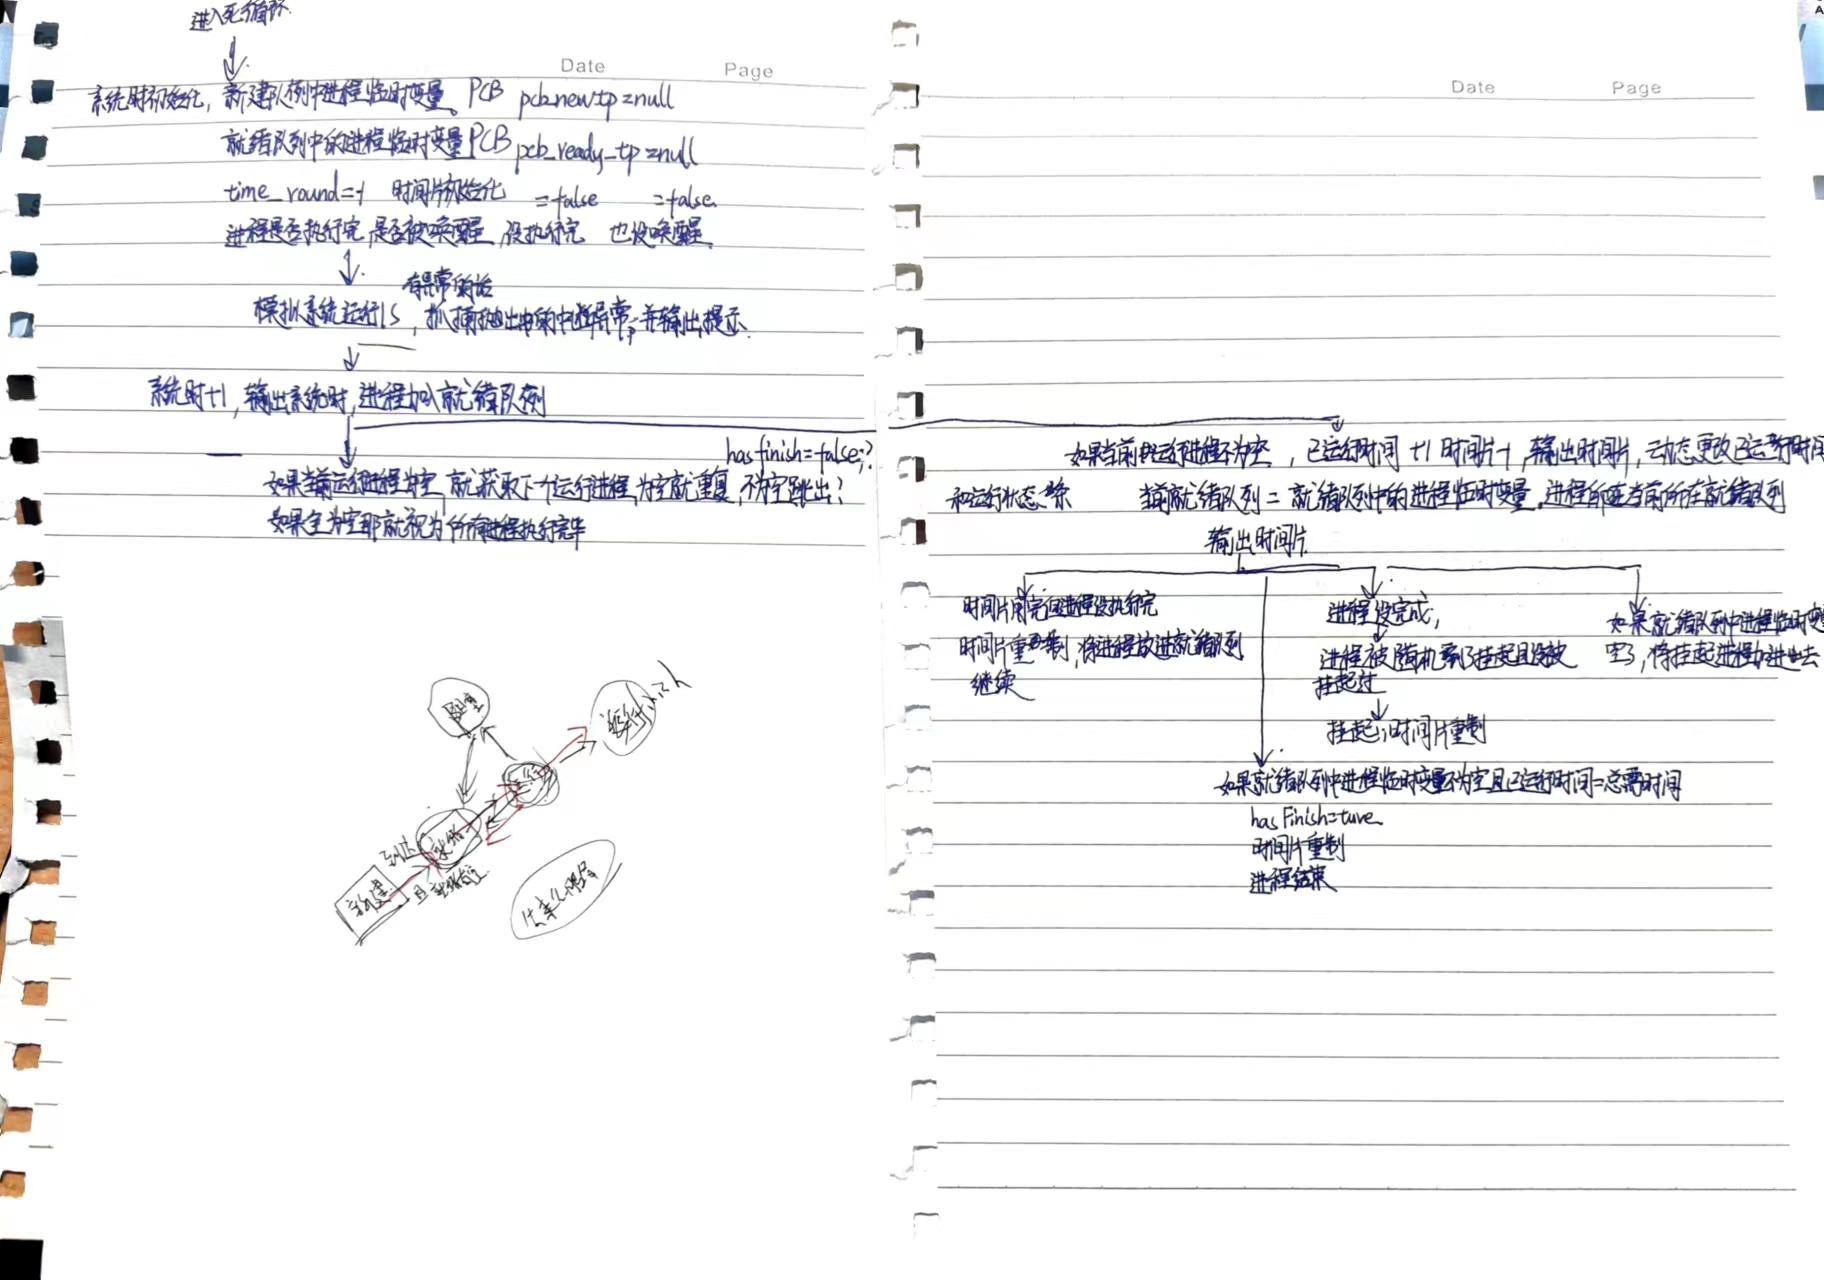 进入死循环
Date Page
系统时初始化,新建队例中进程临时变量。PCB pcb_new_tp=null
就绪队列中的进程临时变量PCB pcb_ready_tp=null
time_round=-1 时间片初始化 =false =false.
进程是否执行完,是否被唤醒,没执行完 也没唤醒.
有异常的话
模拟系统运行1s,抓捕抛出来的中断异常,并输出提示.
系统时+1,输出系统时,进程加入就绪队例
hasfinish=false;?
如果当前运行进程为空,就获取下个运行进程,为空就重复,不为空跳出?
如果全为空那就视为所有进程执行完毕
阻塞
就绪
到达
新建
且就绪
Date Page
如果当前运行进程不为空,已运行时间+1 时间片-1,输出时间片,动态更改已运行时间
和运行状态条 当前就绪队列=就绪队列中的进程临时变量.进程所在当前所在就绪队列
输出时间片
时间片用完但进程没执行完
时间片重制,将进程放进就绪队列
继续
进程没完成,
进程被随机到了挂起且没被
挂起过
挂起,时间片重制
如果就绪队列中进程临时变
空了,将挂起进程加进出去
如果就绪队列中进程临时变量不为空且已运行时间=总需时间
hasFinish=ture
时间片重制
进程结束